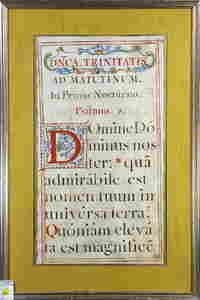 ONCA. TRINITATIS
AD MATUTINUM.
In Primo Nocturno.
Psalmus
DOmine Dó
minus nos
ter: * quã
admirábile est
nomen tuum in
universa terra!
Quóniam eleva
ta est magnificé